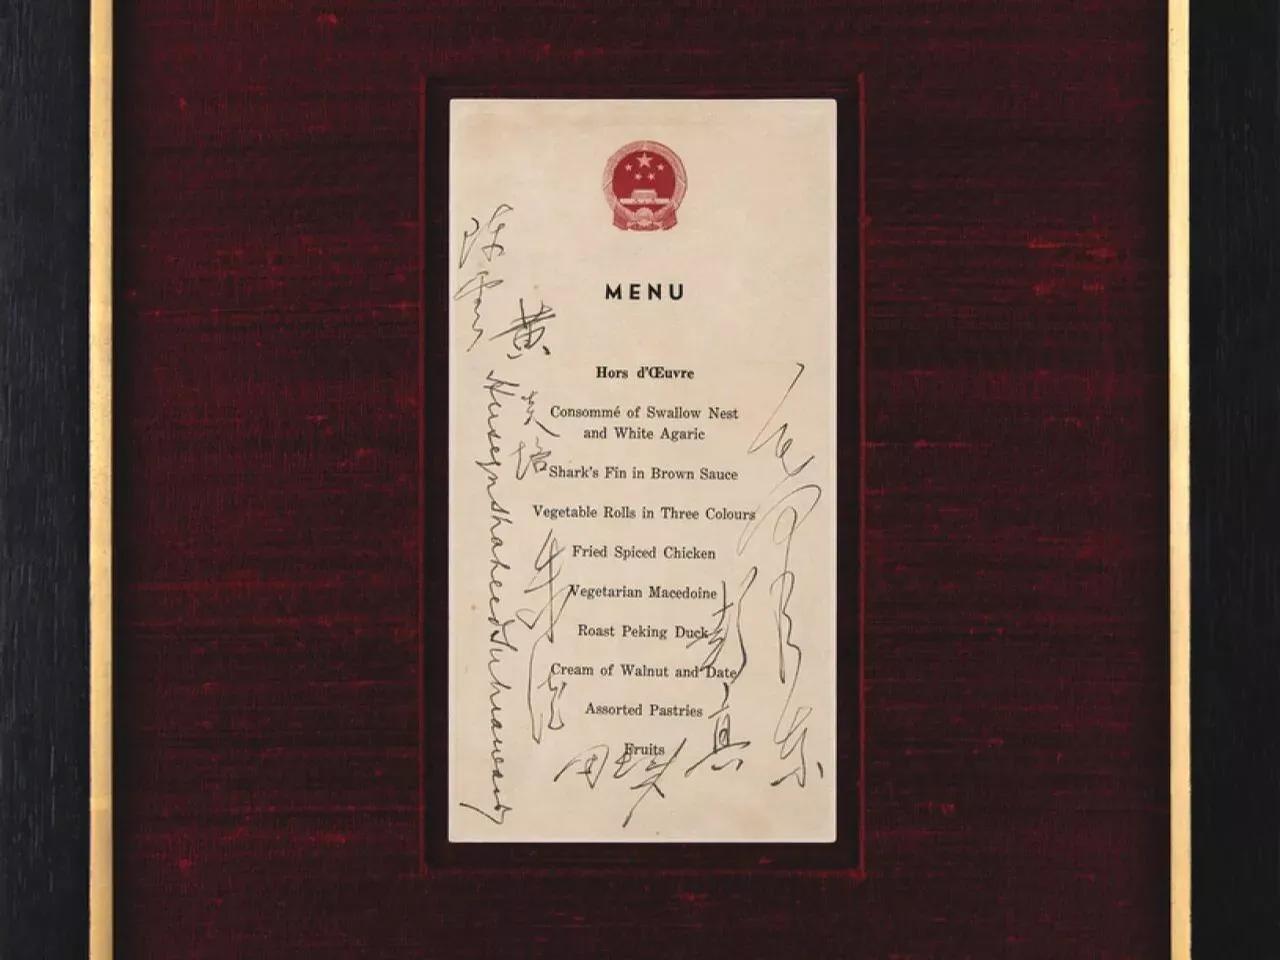 MENU
Hors d'Œuvre
Consommé of Swallow Nest
and White Agaric
Shark's Fin in Brown Sauce
Vegetable Rolls in Three Colours
Fried Spiced Chicken
Vegetarian Macedoine
Roast Peking Duck
Cream of Walnut and Date
Assorted Pastries
Fruits
Huseyn Shaheed Suhrawardy
黄